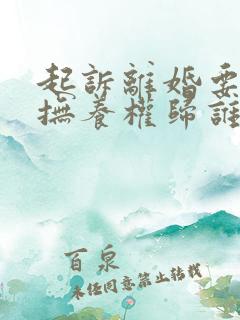 起訴離婚要
撫養權歸誰
百泉
未经同意禁止转载